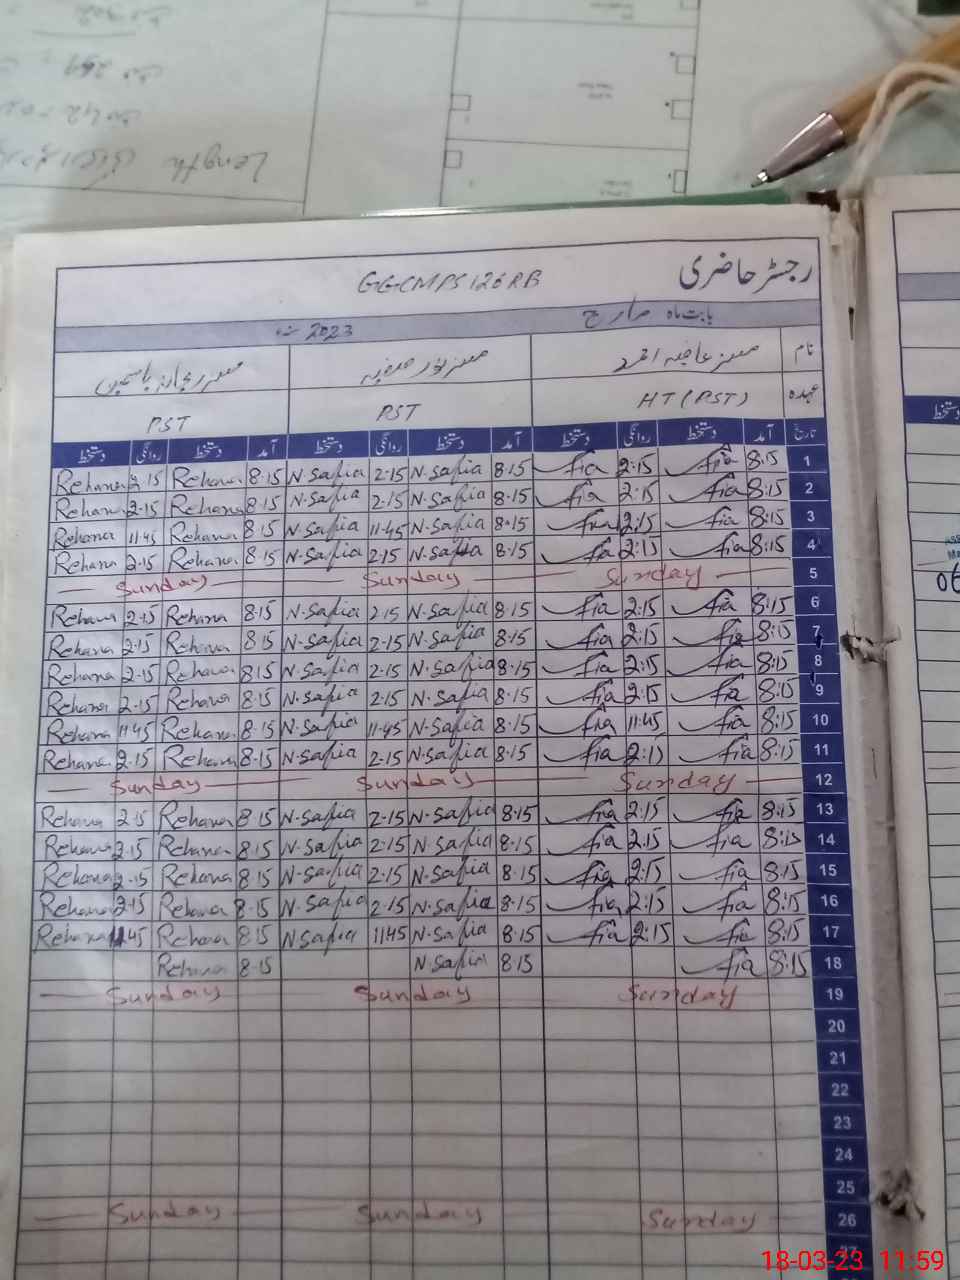 Length
رجسٹر حاضری
GGCMPS 126 RB
بابت ماہ مارچ 2023ء
نام مسز عافیہ احمد مسز نور صفیہ مسز ریحانہ یاسمین
عہدہ HT (PST) PST PST
تاریخ آمد دستخط روانگی دستخط آمد دستخط روانگی دستخط آمد دستخط روانگی دستخط
Rehana 2.15 Rehana 8.15 N.Safia 2.15 N.Safia 8.15 fia 2:15 fia 8:15 1
Rehana 2.15 Rehana 8.15 N.Safia 2.15 N.Safia 8.15 fia 2:15 fia 8:15 2
Rehana 11.45 Rehana 8.15 N.Safia 11.45 N.Safia 8.15 fia 2:15 fia 8:15 3
Rehana 2.15 Rehana 8.15 N.Safia 2.15 N.Safia 8.15 fia 2:15 fia 8:15 4
Sunday Sunday Sunday 5
Rehana 2.15 Rehana 8.15 N.Safia 2.15 N.Safia 8.15 fia 2:15 fia 8:15 6
Rehana 2.15 Rehana 8.15 N.Safia 2.15 N.Safia 8.15 fia 2:15 fia 8:15 7
Rehana 2.15 Rehana 8.15 N.Safia 2.15 N.Safia 8.15 fia 2:15 fia 8:15 8
Rehana 2.15 Rehana 8.15 N.Safia 2.15 N.Safia 8.15 fia 2:15 fia 8:15 9
Rehana 11.45 Rehana 8.15 N.Safia 11.45 N.Safia 8.15 fia 11:45 fia 8:15 10
Rehana 2.15 Rehana 8.15 N.Safia 2.15 N.Safia 8.15 fia 2:15 fia 8:15 11
Sunday Sunday Sunday 12
Rehana 2.15 Rehana 8.15 N.Safia 2.15 N.Safia 8.15 fia 2:15 fia 8:15 13
Rehana 2.15 Rehana 8.15 N.Safia 2.15 N.Safia 8.15 fia 2:15 fia 8:15 14
Rehana 2.15 Rehana 8.15 N.Safia 2.15 N.Safia 8.15 fia 2:15 fia 8:15 15
Rehana 2.15 Rehana 8.15 N.Safia 2.15 N.Safia 8.15 fia 2:15 fia 8:15 16
Rehana 11.45 Rehana 8.15 N Safia 11.45 N.Safia 8.15 fia 2:15 fia 8:15 17
Rehana 8.15 N.Safia 8.15 fia 8:15 18
Sunday Sunday Sunday 19
20
21
22
23
24
25
Sunday Sunday Sunday 26
27
18-03-23 11:59